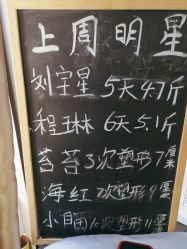 上周明星
刘宇星 5天4.7斤
程琳 6天5.1斤
苔苔3次塑形7厘米
海红 7次塑形9厘米
小苗10次塑形11厘米